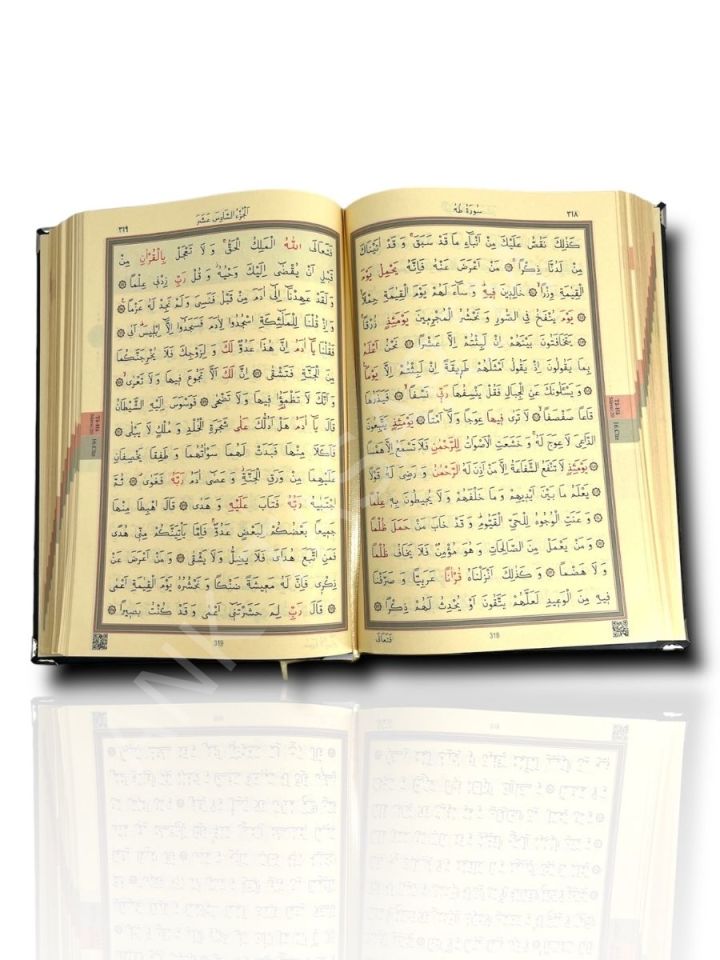 سُورَةُ طٰهٰ
٣١٨
كَذٰلِكَ نَقُصُّ عَلَيْكَ مِنْ اَنْبَٓاءِ مَا قَدْ سَبَقَۚ وَ قَدْ اٰتَيْنَاكَ
مِنْ لَدُنَّا ذِكْرًاۚ ۞ مَنْ اَعْرَضَ عَنْهُ فَاِنَّهُ يَحْمِلُ يَوْمَ
الْقِيٰمَةِ وِزْرًاۙ ۞ خَالِدِينَ فِيهِۜ وَ سَٓاءَ لَهُمْ يَوْمَ الْقِيٰمَةِ حِمْلًاۙ
۞ يَوْمَ يُنْفَخُ فِي الصُّورِ وَ نَحْشُرُ الْمُجْرِمِينَ يَوْمَئِذٍ زُرْقًاۚ
۞ يَتَخَافَتُونَ بَيْنَهُمْ اِنْ لَبِثْتُمْ اِلَّا عَشْرًا ۞ نَحْنُ اَعْلَمُ
بِمَا يَقُولُونَ اِذْ يَقُولُ اَمْثَلُهُمْ طَرِيقَةً اِنْ لَبِثْتُمْ اِلَّا يَوْمًا
۞ وَ يَسْـَٔلُونَكَ عَنِ الْجِبَالِ فَقُلْ يَنْسِفُهَا رَبِّي نَسْفًاۙ ۞ فَيَذَرُهَا
قَاعًا صَفْصَفًاۙ ۞ لَا تَرٰى فِيهَا عِوَجًا وَ لَٓا اَمْتًا ۞ يَوْمَئِذٍ يَتَّبِعُونَ
الدَّاعِيَ لَا عِوَجَ لَهُ وَ خَشَعَتِ الْاَصْوَاتُ لِلرَّحْمٰنِ فَلَا تَسْمَعُ اِلَّا هَمْسًا
۞ يَوْمَئِذٍ لَا تَنْفَعُ الشَّفَاعَةُ اِلَّا مَنْ اَذِنَ لَهُ الرَّحْمٰنُ وَ رَضِيَ لَهُ قَوْلًا
۞ يَعْلَمُ مَا بَيْنَ اَيْدِيهِمْ وَ مَا خَلْفَهُمْ وَ لَا يُحِيطُونَ بِهِ عِلْمًا
۞ وَ عَنَتِ الْوُجُوهُ لِلْحَيِّ الْقَيُّومِ وَ قَدْ خَابَ مَنْ حَمَلَ ظُلْمًا
۞ وَ مَنْ يَعْمَلْ مِنَ الصَّالِحَاتِ وَ هُوَ مُؤْمِنٌ فَلَا يَخَافُ ظُلْمًا
وَ لَا هَضْمًا ۞ وَ كَذٰلِكَ اَنْزَلْنَاهُ قُرْاٰنًا عَرَبِيًّا وَ صَرَّفْنَا
فِيهِ مِنَ الْوَعِيدِ لَعَلَّهُمْ يَتَّقُونَ اَوْ يُحْدِثُ لَهُمْ ذِكْرًا ۞
318
فَتَعَالَى
16.Cüz
اَلْجُزْءُ السَّادِسَ عَشَرَ
٣١٩
فَتَعَالَى اللّٰهُ الْمَلِكُ الْحَقُّۚ وَ لَا تَعْجَلْ بِالْقُرْاٰنِ مِنْ
قَبْلِ اَنْ يُقْضٰٓى اِلَيْكَ وَحْيُهُ وَ قُلْ رَبِّ زِدْنِي عِلْمًا ۞
وَ لَقَدْ عَهِدْنَٓا اِلٰٓى اٰدَمَ مِنْ قَبْلُ فَنَسِيَ وَ لَمْ نَجِدْ لَهُ عَزْمًا ۞
وَ اِذْ قُلْنَا لِلْمَلٰٓئِكَةِ اسْجُدُوا لِاٰدَمَ فَسَجَدُٓوا اِلَّٓا اِبْلِيسَۜ اَبٰى ۞
فَقُلْنَا يَٓا اٰدَمُ اِنَّ هٰذَا عَدُوٌّ لَكَ وَ لِزَوْجِكَ فَلَا يُخْرِجَنَّكُمَا
مِنَ الْجَنَّةِ فَتَشْقٰى ۞ اِنَّ لَكَ اَلَّا تَجُوعَ فِيهَا وَ لَا تَعْرٰىۙ ۞
وَ اَنَّكَ لَا تَظْمَؤُ۬ا فِيهَا وَ لَا تَضْحٰى ۞ فَوَسْوَسَ اِلَيْهِ الشَّيْطَانُ
قَالَ يَٓا اٰدَمُ هَلْ اَدُلُّكَ عَلٰى شَجَرَةِ الْخُلْدِ وَ مُلْكٍ لَا يَبْلٰى ۞
فَاَكَلَا مِنْهَا فَبَدَتْ لَهُمَا سَوْاٰتُهُمَا وَ طَفِقَا يَخْصِفَانِ
عَلَيْهِمَا مِنْ وَرَقِ الْجَنَّةِ وَ عَصٰٓى اٰدَمُ رَبَّهُ فَغَوٰى ۞ ثُمَّ
اجْتَبٰيهُ رَبُّهُ فَتَابَ عَلَيْهِ وَ هَدٰى ۞ قَالَ اهْبِطَا مِنْهَا
جَمِيعًا بَعْضُكُمْ لِبَعْضٍ عَدُوٌّۚ فَاِمَّا يَأْتِيَنَّكُمْ مِنِّي هُدًى
فَمَنِ اتَّبَعَ هُدَايَ فَلَا يَضِلُّ وَ لَا يَشْقٰى ۞ وَ مَنْ اَعْرَضَ عَنْ
ذِكْرِي فَاِنَّ لَهُ مَعِيشَةً ضَنْكًا وَ نَحْشُرُهُ يَوْمَ الْقِيٰمَةِ اَعْمٰى
۞ قَالَ رَبِّ لِمَ حَشَرْتَنِٓي اَعْمٰى وَ قَدْ كُنْتُ بَصِيرًا ۞
319
16.Cüz